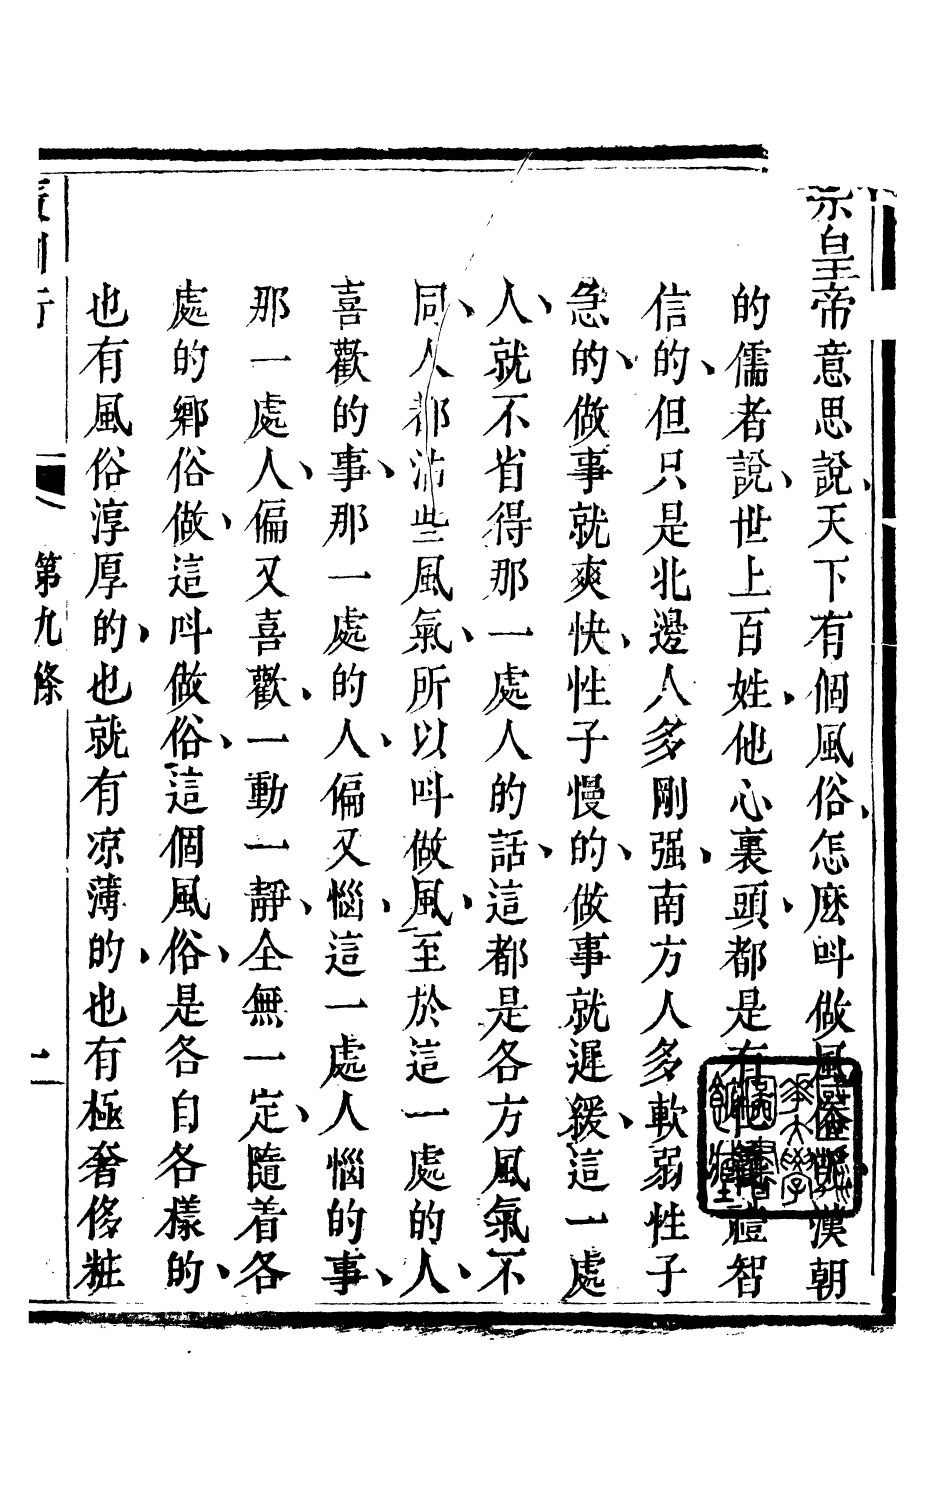 宗皇帝意思說、天下有個風俗、怎麽呌做風俗漢朝
的儒者說、世上百姓、他心裏頭、都是有仁義禮智
信的、但只是北邊人多剛强、南方人多軟弱性子
急的、做事就爽快、性子慢的、做事就遲緩、這一處
人、就不省得那一處人的話、這都是各方風氣不
同、人都沾些風氣、所以呌做風、至於這一處的人、
喜歡的事、那一處的人、偏又惱、這一處人惱的事、
那一處人、偏又喜歡、一動一靜、全無一定、隨着各
處的鄉俗做、這呌做俗、這個風俗、是各自各樣的、
也有風俗淳厚的、也就有凉薄的、也有極奢侈粧
第九條